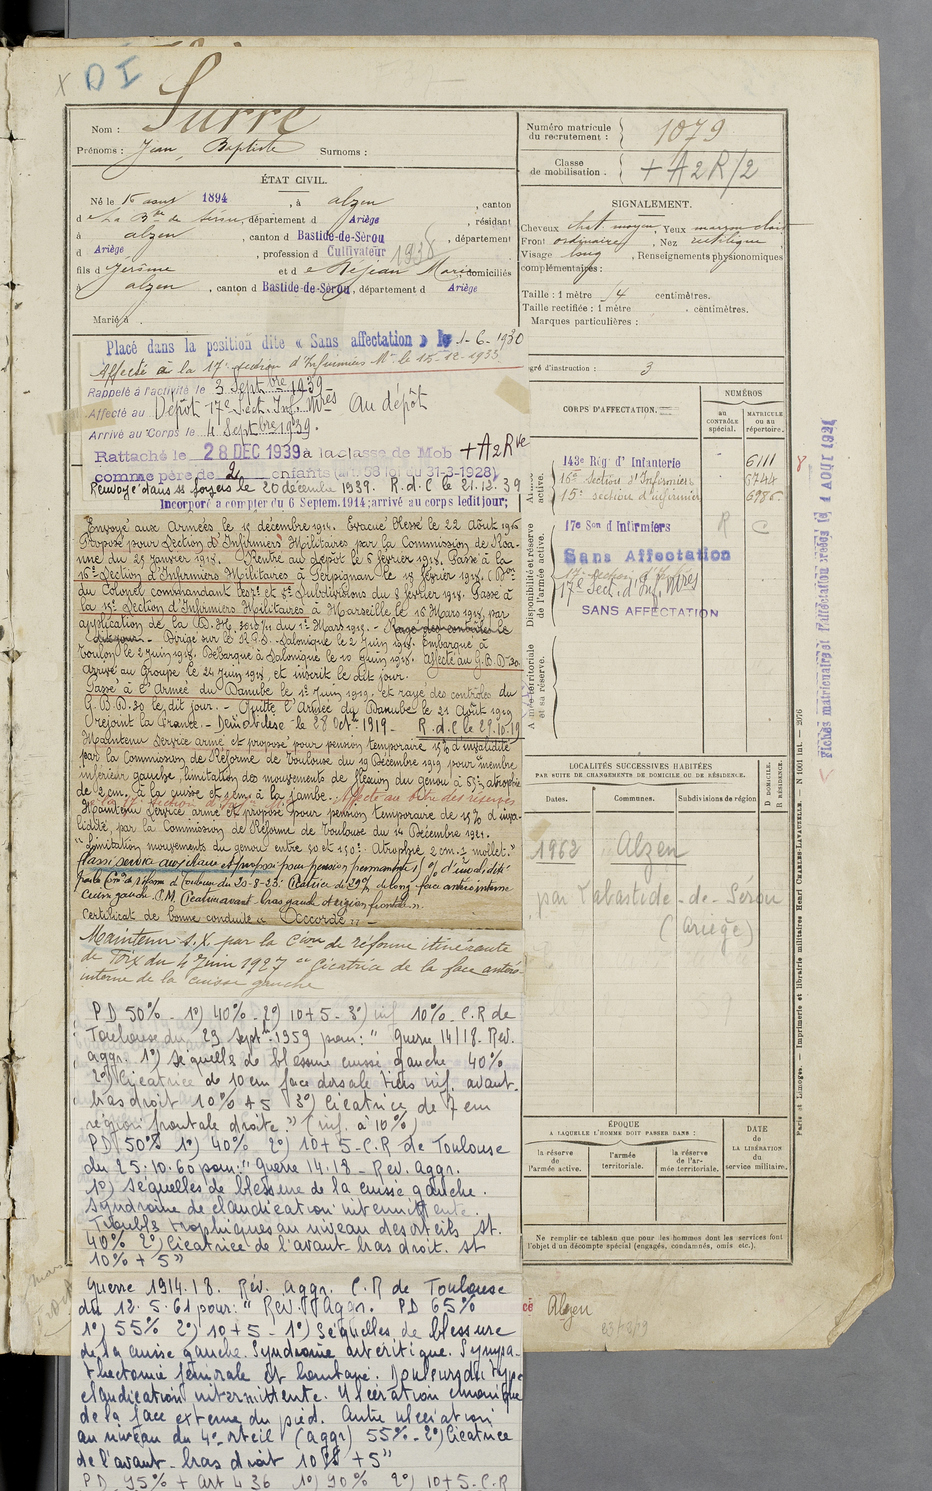 X D I
Nom : Surre
Prénoms : Jean, Baptiste Surnoms :
ÉTAT CIVIL.
Né le 16 aout 1894, à alzen, canton
de La Bde de Sérou, département d Ariège, résidant
à alzen, canton d Bastide-de-Sérou, département
d Ariège, profession d Cultivateur 1936
fils d Jérôme et de Réjean Marie domiciliés
à alzen, canton d Bastide-de-Sérou, département d Ariège
Marié à
Placé dans la position dite « Sans affectation » le 1-6-1930
Affecté à la 17e section d'Infirmiers Mres le 15-12-1933
Rappelé à l'activité le 3 Septbre 1939
Affecté au Dépôt 17e Sect. Inf. Mres Au dépôt
Arrivé au Corps le 4 Septbre 1939.
Rattaché le 28 DEC 1939 à la classe de Mob + A2Rve
comme père de 2 enfants (art. 58 loi du 31-3-1928)
Renvoyé dans ss foyers le 20 décembre 1939. R.d.C le 21.12.39
Incorporé à compter du 6 Septem. 1914; arrivé au corps ledit jour;
Envoyé aux Armées le 15 décembre 1914. Evacué blessé le 22 Août 1916
Proposé pour Section d'Infirmiers Militaires par la Commission de Roa-
nne du 25 Janvier 1918. Rentré au dépôt le 5 février 1918. Passé à la
16e Section d'Infirmiers Militaires à Perpignan le 18 février 1918. (Don
du Colonel commandant les 1e et 5e Subdivisions du 8 février 1918. Passé à
la 15e Section d'Infirmiers Militaires à Marseille le 16 Mars 1918, par
application de la D.M. du 1er Mars 1918. - Rayé des contrôles le
dit jour. - Dirigé sur le Salonique le 2 Juin 1918. Embarqué à
Toulon le 2 Juin 1918. Débarqué à Salonique le 10 Juin 1918. Affecté au G.B.D. 30
Arrivé au Groupe le 24 Juin 1918, et inscrit le dit jour.
Passé à l'Armée du Danube le 1er Juin 1919, et rayé des contrôles du
G.B.D. 30 le dit jour. - Quitte l'Armée du Danube le 21 Août 1919
rejoint la France. - Démobilisé le 28 Octre 1919 - R.d.C le 29.10.19
Maintenu Service armé et proposé pour pension temporaire 15% d'invalidité
par la Commission de Réforme de Toulouse du 19 Décembre 1919 pour membre
inférieur gauche, limitation des mouvements de flexion du genou à 55°, atrophie
de 2 cm. à la cuisse et 1 cm. à la jambe. Affecté au titre des réserves
à la 17e section d'Infirs Mres
Maintenu Service armé et proposé pour pension temporaire de 15% d'inva-
lidité, par la Commission de Réforme de Toulouse du 14 Décembre 1921.
"Limitation mouvements du genou entre 50 et 150°. Atrophie 2 cm. mollet."
Classé service auxiliaire et proposé pour pension permanente % d'invalidité
par la Com de réforme de Toulouse du 20-8-23. Cicatrice de 29 % de long face antéro interne
Cuisse gauche. P.M. Cicatrice avant bras gauche et région frontale.
Certificat de bonne conduite « Accordé »
Maintenu S.X. par la Cion de réforme itinérante
de Foix du 4 Juin 1927 "Cicatrice de la face antéro
interne de la cuisse gauche
PD 50% - 1°) 40% - 2°) 10+5 - 3°) inf 10% - C.R de
Toulouse du 29 Sept. 1959 pour: " Guerre 14/18. Rev.
aggr. 1°) séquelles de blessure cuisse gauche 40%
2°) Cicatrice de 10 cm face dorsale tiers inf. avant-
bras droit 10% + 5 3°) Cicatrice de 7 cm
région frontale droite." (inf. à 10%)
PD 50% 1°) 40% 2°) 10+5 - C.R de Toulouse
du 25.10.60 pour: "Guerre 14.18 - Rev. Aggr.
1°) Séquelles de blessure de la cuisse gauche.
Syndrome de claudication intermittente.
Troubles trophiques au niveau des orteils st.
40% 2°) Cicatrice de l'avant bras droit. st
10% + 5"
Guerre 1914.18. Rév. aggr. C.R de Toulouse
du 12.5.61 pour: " Rev. Aggr. PD 65%
1°) 55% 2°) 10+5 - 1°) Séquelles de blessure
de la cuisse gauche. Syndrome artéritique. Sympa-
thectomie fémorale et lombaire. Douleurs du type
claudication intermittente. Ulcération chronique
de la face externe du pied. Autre ulcération
au niveau du 4e orteil (aggr) 55% - 2°) Cicatrice
de l'avant-bras droit 10% + 5"
PD 95% + Art L 36 1°) 90% 2°) 10+5 - C.R
Numéro matricule du recrutement : 1079
Classe de mobilisation . + A2R/2
SIGNALEMENT.
Cheveux chat. moyen, Yeux marron clair
Front ordinaire, Nez rectiligne
Visage long, Renseignements physionomiques
complémentaires :
Taille : 1 mètre 54 centimètres.
Taille rectifiée : 1 mètre . centimètres.
Marques particulières :
gré d'instruction : 3
CORPS D'AFFECTATION.
NUMÉROS
au CONTRÔLE spécial.
MATRICULE OU AU répertoire.
active.
143e Rég. d'Infanterie 6111 8
16e section d'Infirmiers 6744
15e section d'infirmiers 6986
Disponibilité et réserve de l'armée active.
17e Son d'Infirmiers R C
Sans Affectation
17e Sect. d'Inf. Mres
SANS AFFECTATION
Armée territoriale et sa réserve.
Fiches matricule et d'affectation créées le 4 AOUT 1921
LOCALITÉS SUCCESSIVES HABITÉES
PAR SUITE DE CHANGEMENTS DE DOMICILE OU DE RÉSIDENCE.
Dates. Communes. Subdivisions de région D DOMICILE. R RÉSIDENCE.
1962 Alzen
par Labastide-de-Sérou
(Ariège)
ÉPOQUE
A LAQUELLE L'HOMME DOIT PASSER DANS :
la réserve de l'armée active.
l'armée territoriale.
la réserve de l'ar- mée territoriale.
DATE de LA LIBÉRATION du service militaire.
Ne remplir ce tableau que pour les hommes dont les services font
l'objet d'un décompte spécial (engagés, condamnés, omis etc.).
Paris et Limoges. — Imprimerie et librairie militaires Henri CHARLES-LAVAUZELLE. — N 1001 int. — 2076
Alzen